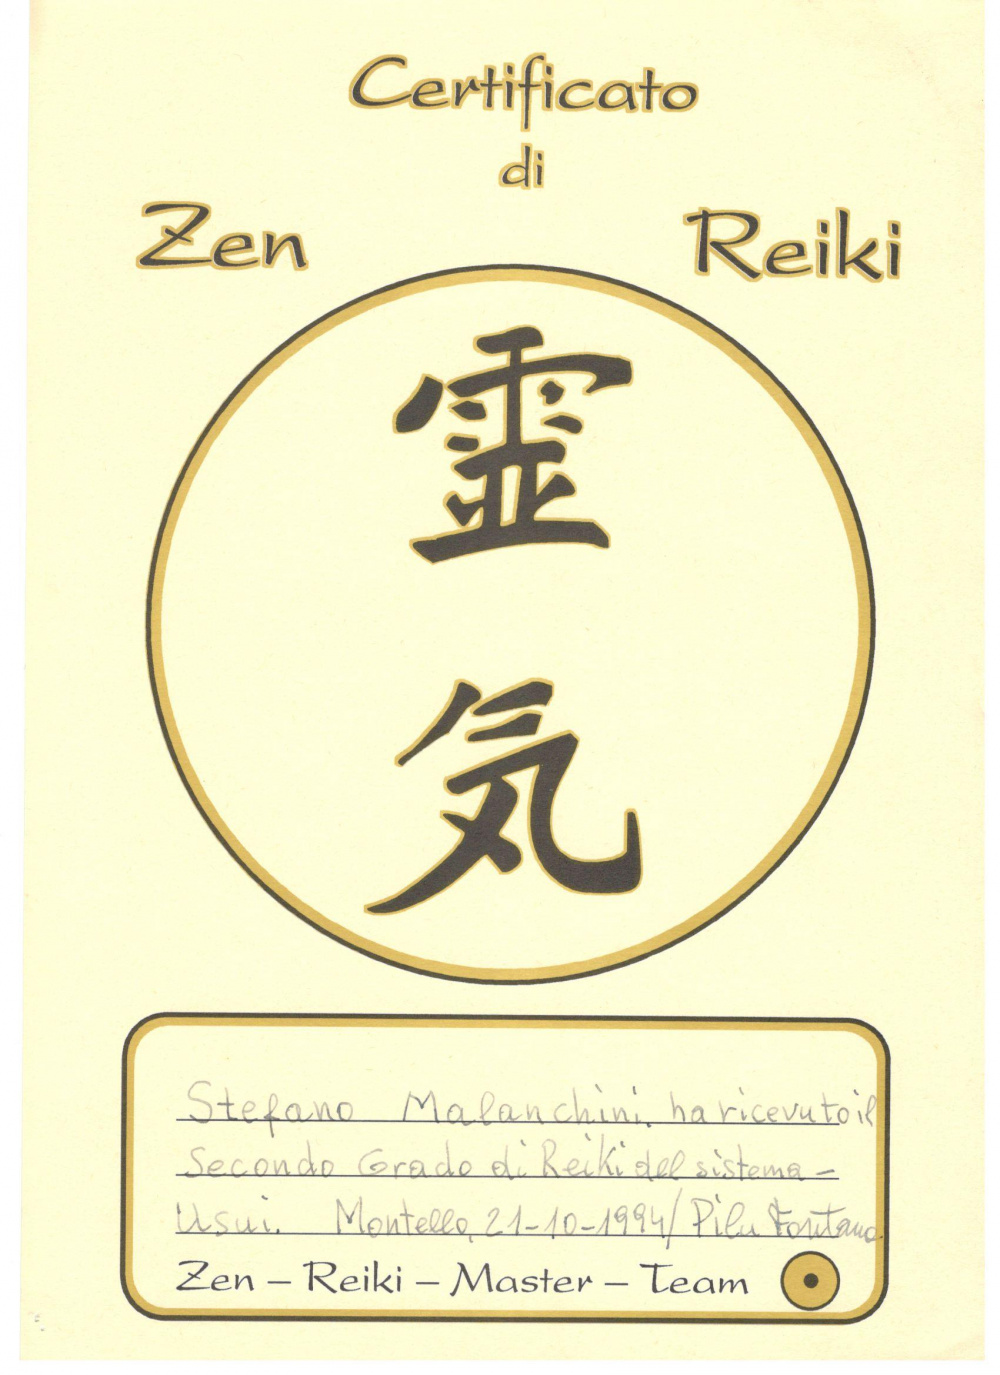 Certificato
di
Zen Reiki
霊
気
Stefano Malanchini. ha ricevuto il
Secondo Grado di Reiki del sistema -
Usui. Montello, 21-10-1994/ Pilu Fontana
Zen – Reiki – Master – Team